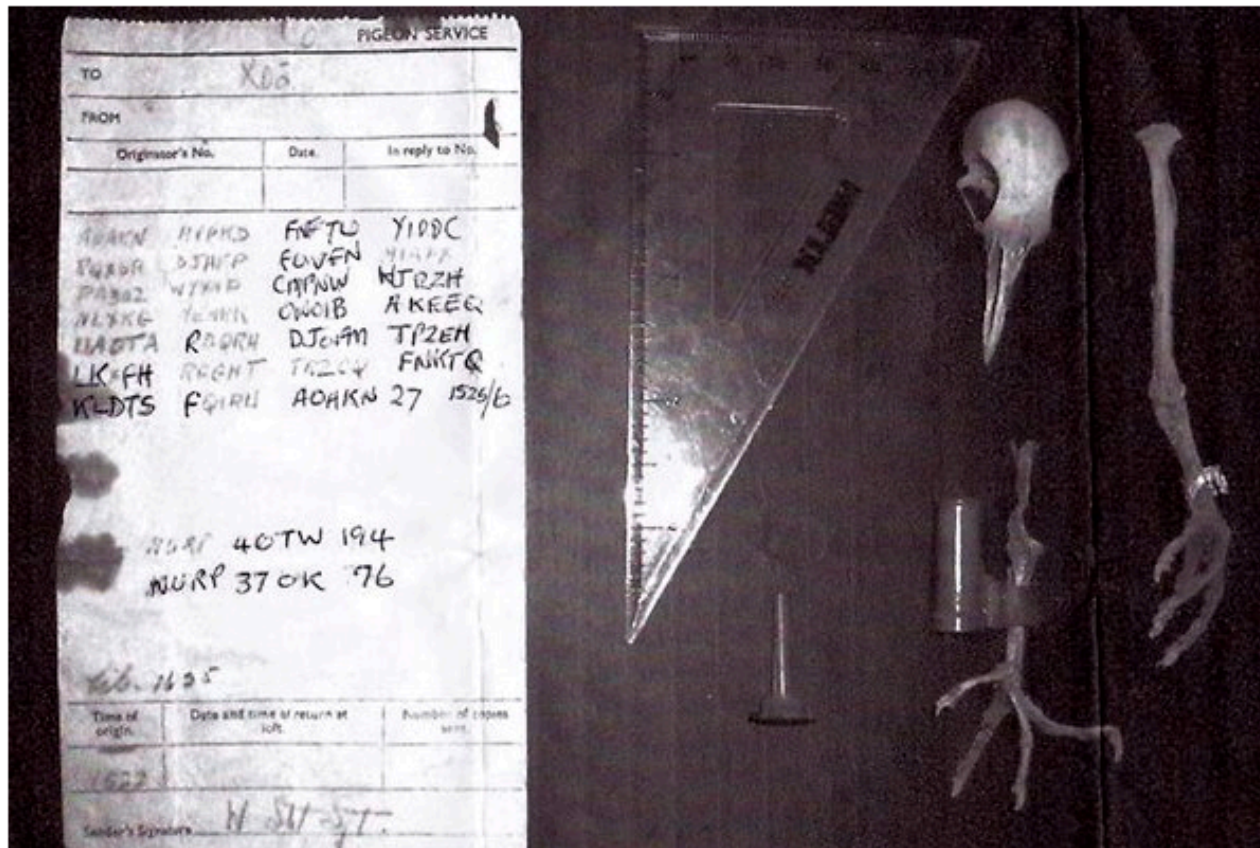 PIGEON SERVICE
TO X02
FROM
Originator's No. Date. In reply to No.
AOAKN HVPKD FNFTW YIDDC
DJHFP FOVFN
CMPNW HJRZH
NLXKG OWOIB AKEEQ
UAOTA RBQRH DJOFM TPZEH
LKXFH RGGHT FNKTQ
KLDTS FQIRW AOAKN 27 1525/6
NURP 40TW 194
NURP 37OK 76
lib. 1625
Time of origin. Date and time of return at loft. Number of copies sent.
1522
Sender's Signature W
HELIX